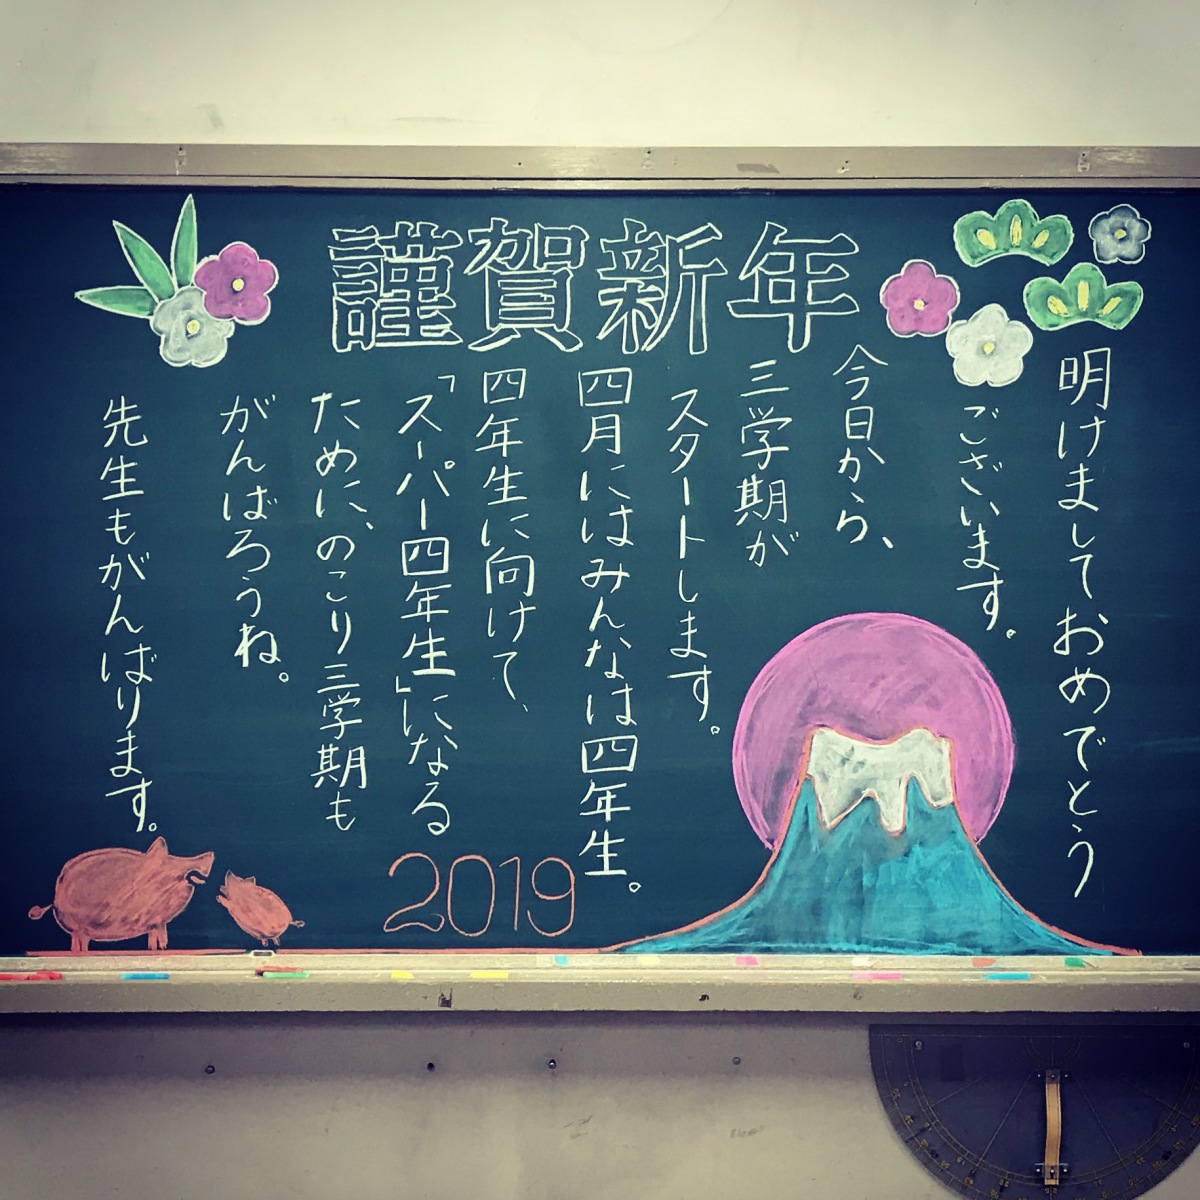 謹賀新年
明けましておめでとう
ございます。
今日から、
三学期が
スタートします。
四月にはみんなは四年生。
四年生に向けて、
「スーパー四年生」になる
ために、のこり三学期も
がんばろうね。
先生もがんばります。
2019